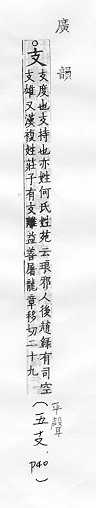 廣韻
○支
支度也支持也亦姓何氏姓苑云琅邪人後趙錄有司空
支雄又漢複姓莊子有支離益善屠龍章移切二十九
平聲
(五支, p40)